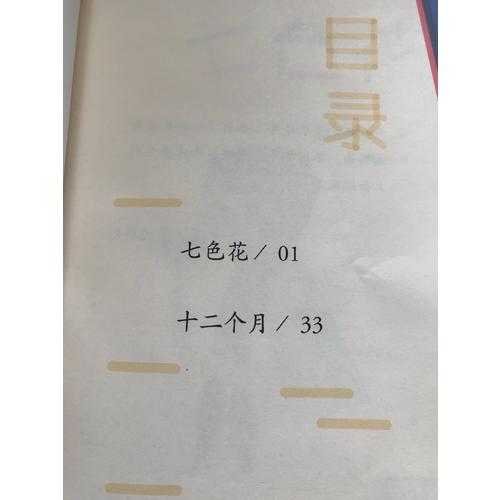 目录
七色花／01
十二个月／33